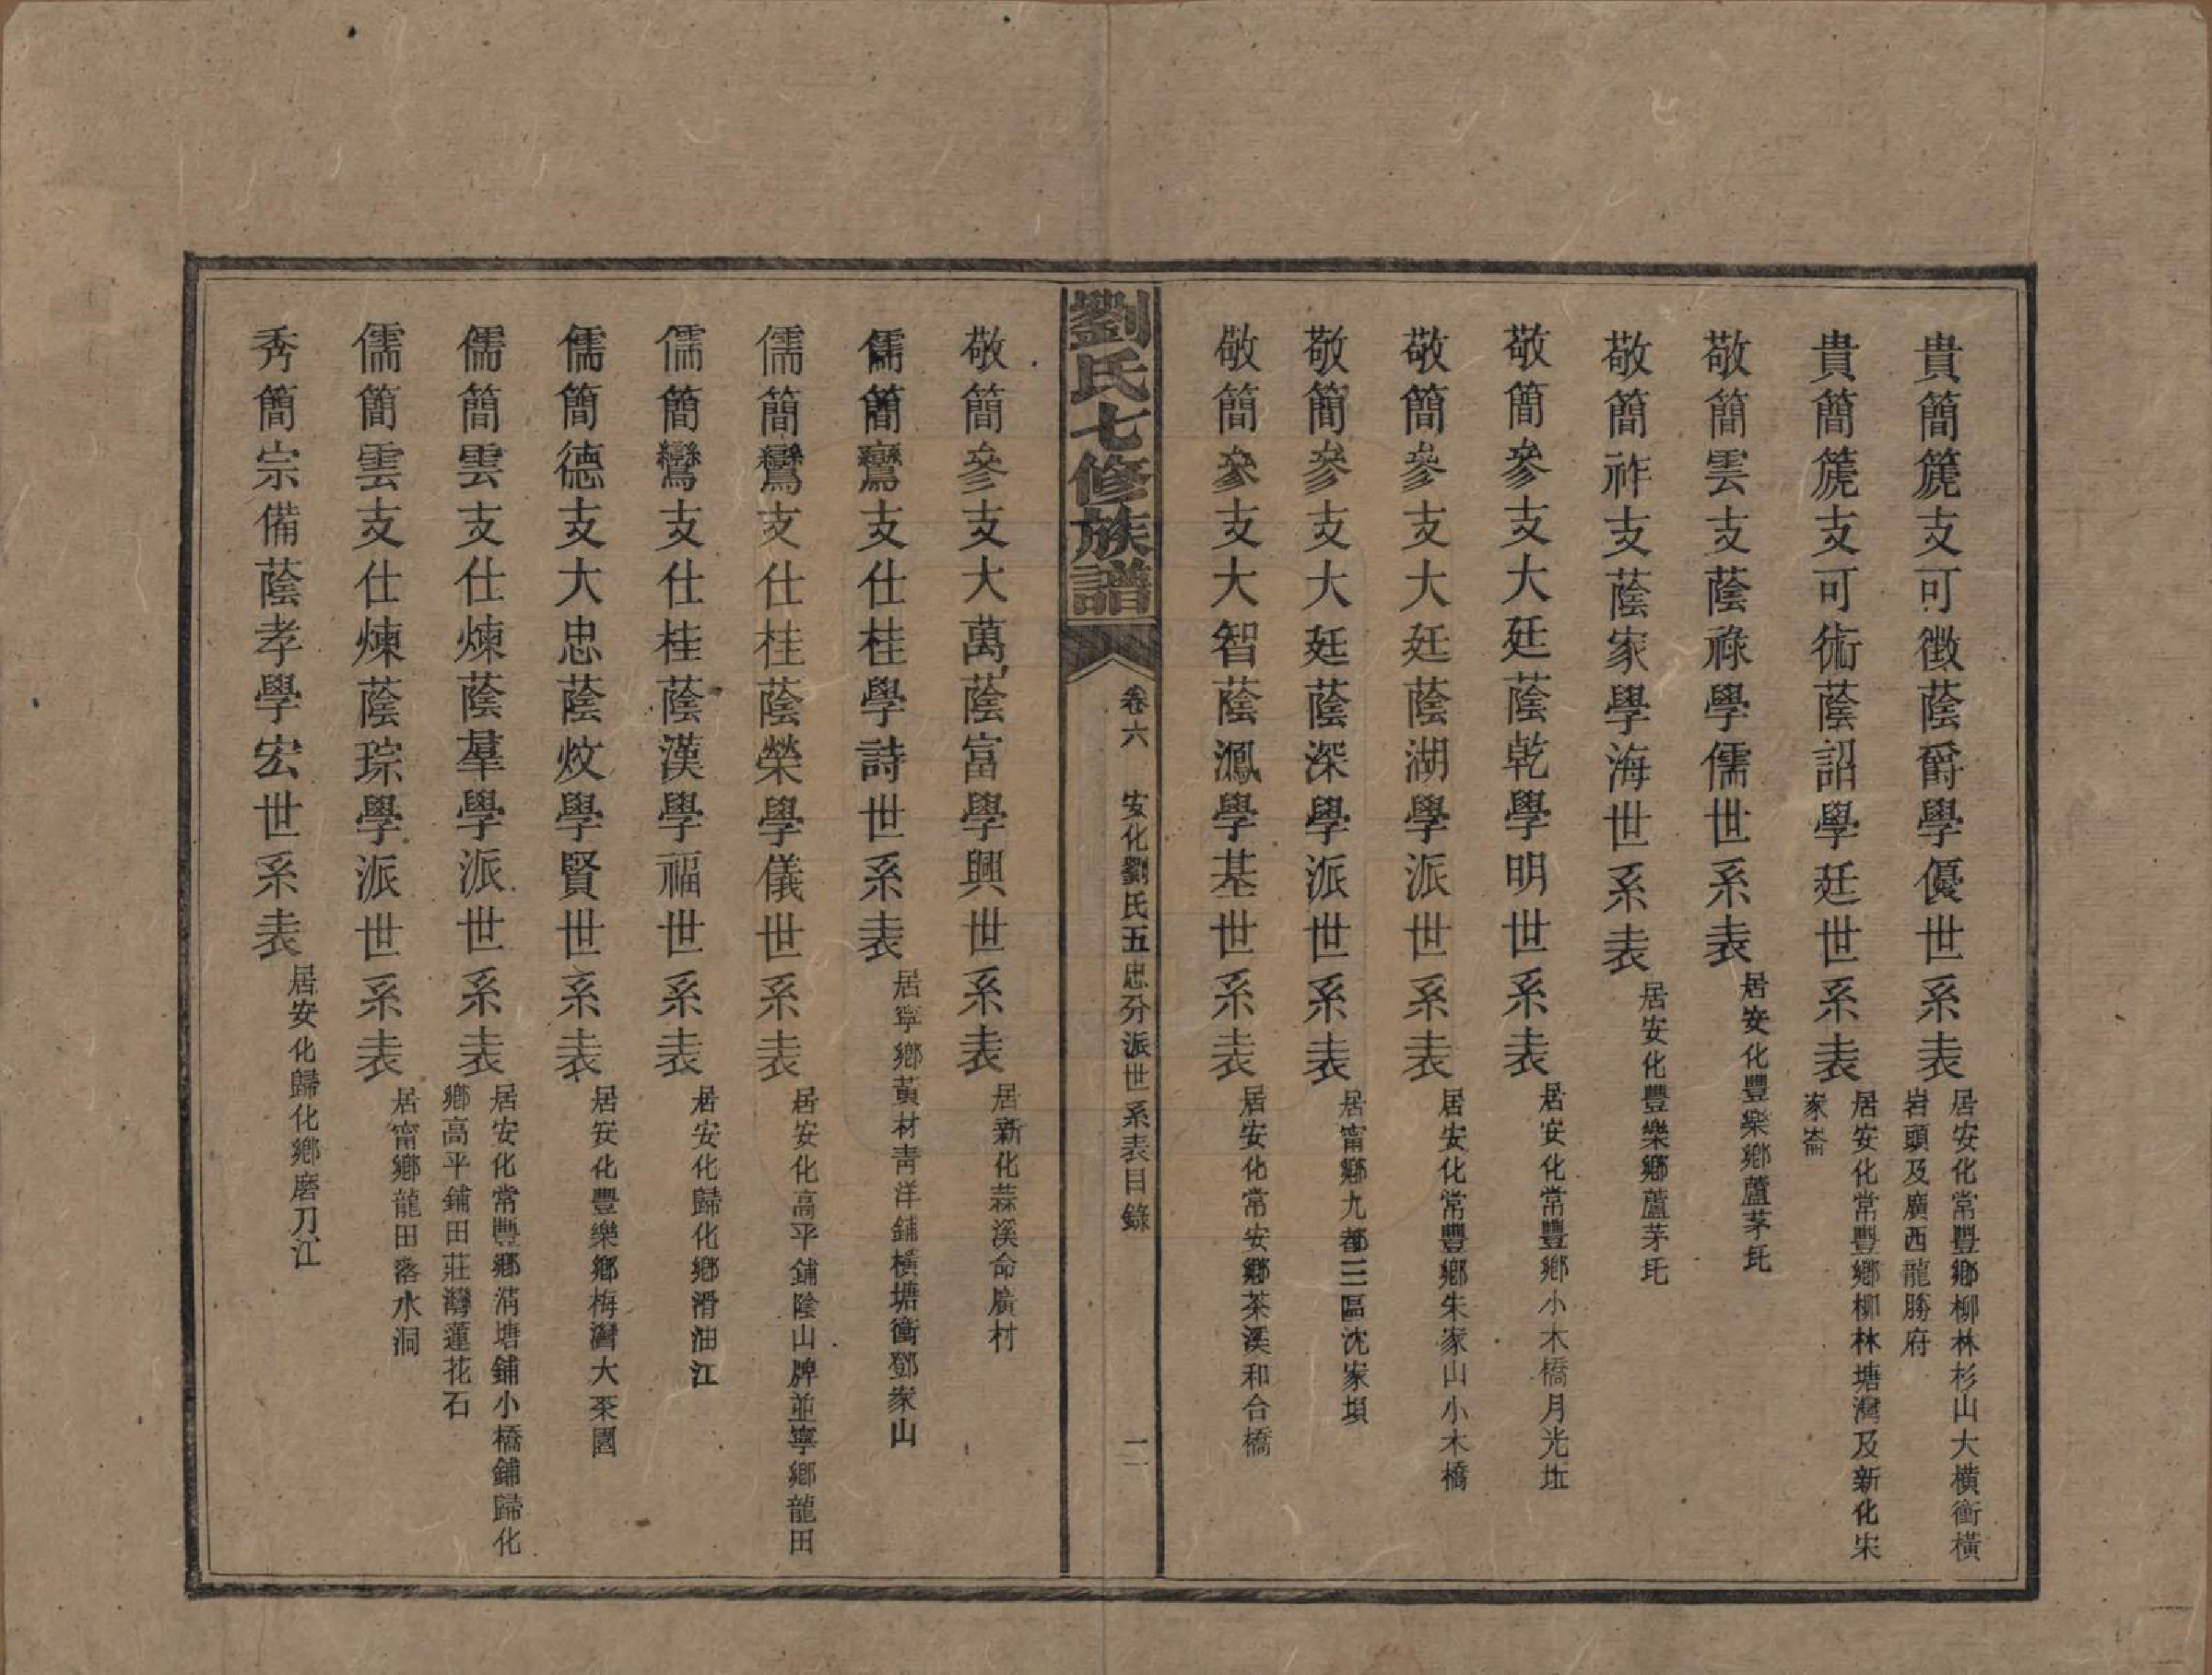 貴簡篪支可徵蔭爵學優世系表 居安化常豐鄉柳林杉山大橫衝橫岩頭及廣西龍勝府
貴簡篪支可術蔭詔學廷世系表 居安化常豐鄉柳林塘灣及新化宋家崙
敬簡雲支蔭祿學儒世系表 居安化豐樂鄉蘆茅㘰
敬簡祚支蔭家學海世系表 居安化豐樂鄉蘆茅㘰
敬簡參支大廷蔭乾學明世系表 居安化常豐鄉小木橋月光坵
敬簡參支大廷蔭湖學派世系表 居安化常豐鄉朱家山小木橋
敬簡參支大廷蔭深學派世系表 居甯鄉九都三區沈家埧
敬簡參支大智蔭鳳學基世系表 居安化常安鄉茶溪和合橋
劉氏七修族譜 卷六 安化劉氏五忠分派世系表目錄 二
敬簡參支大萬蔭富學興世系表 居新化蒜溪命廣村
儒簡鸞支仕桂學詩世系表 居寧鄉黃材青洋鋪橫塘衝鄧家山
儒簡鸞支仕桂蔭榮學儀世系表 居安化高平鋪陰山牌並寧鄉龍田
儒簡鸞支仕桂蔭漢學福世系表 居安化歸化鄉滑油江
儒簡德支大忠蔭炆學賢世系表 居安化豐樂鄉梅灣大茶園
儒簡雲支仕煉蔭羣學派世系表 居安化常豐鄉清塘鋪小橋鋪歸化鄉高平鋪田莊灣蓮花石
儒簡雲支仕煉蔭琮學派世系表 居甯鄉龍田落水洞
秀簡宗備蔭孝學宏世系表 居安化歸化鄉磨刀江